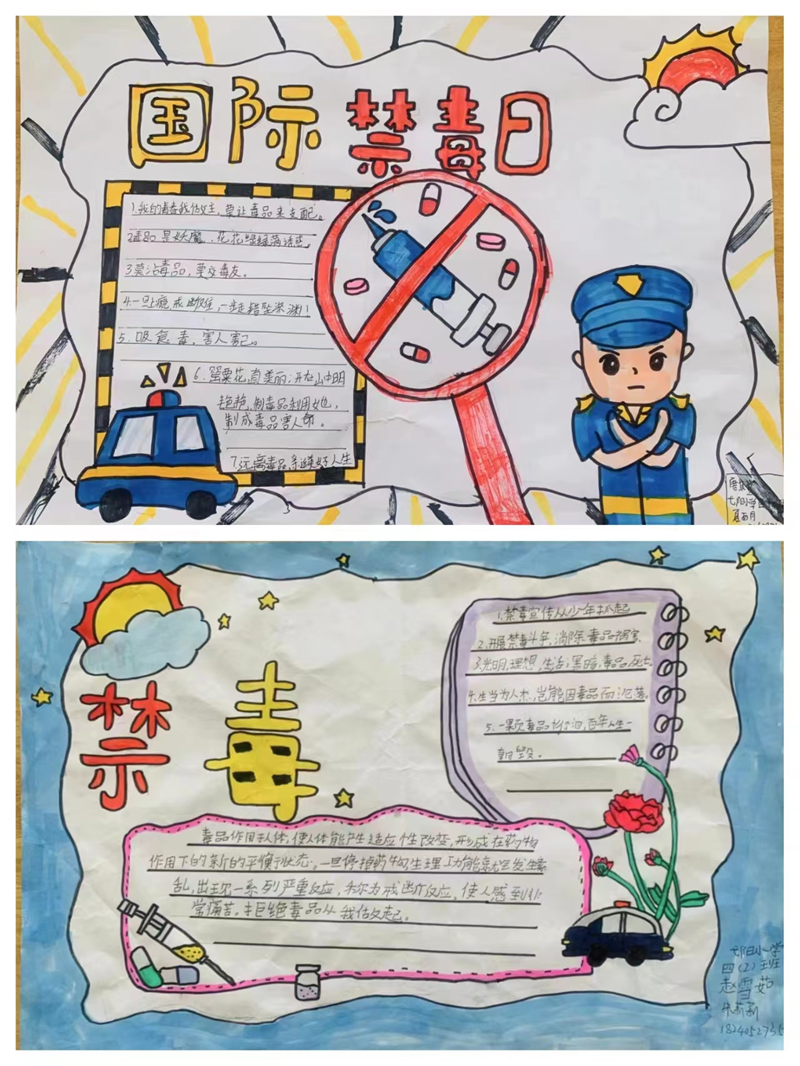 国际禁毒日
1.我的青春我做主,莫让毒品来支配。
2毒品是妖魔,花花绿绿
3.莫沾毒品,莫交毒友。
4.一旦瘾成
5.吸食毒,害人害己。
6.罂粟花,真美丽;开在山中明
艳艳,制毒品利用她,
制成毒品害人命。
7.远离毒品,好人生
七
禁毒
1.禁毒宣传从少年抓起
2.开展禁毒斗争,消除毒品祸害
3.光明,理想,生活;黑暗,毒品,死亡
4.生当为人杰,岂能因毒品而沉落。
5.一颗毒品,百年人生一
朝毁。
毒品作用于人体,使人体能产生适应性改变,形成在药物
作用下的新的平衡状态,一旦停掉药物,生理功能就会发生紊
乱,出现一系列严重反应,称为戒断反应,使人感到非
常痛苦。拒绝毒品从我做起。
小学
四(2)班
赵雪茹